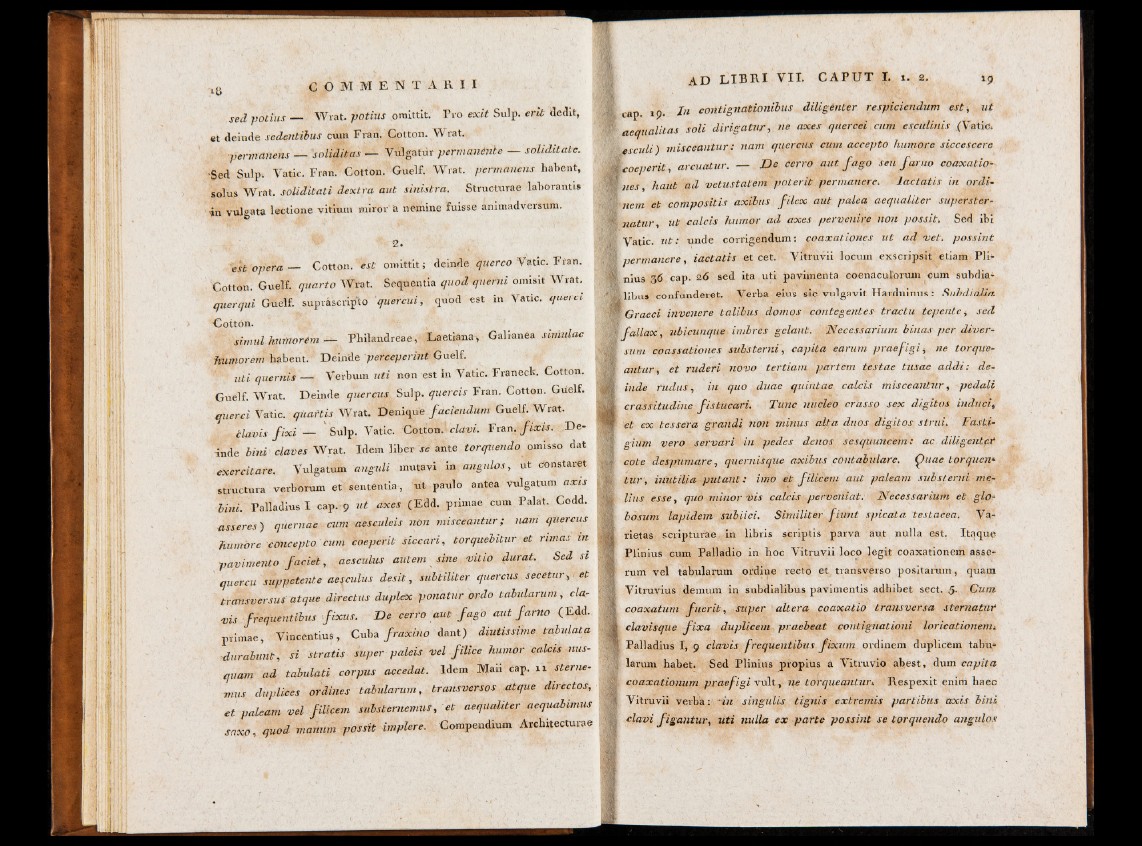 18 COMMENTARII
sed potius — Wrat. potius omittit. Pro exit Sulp. erit dedit,
et deinde sedentibus cum Fran. Cotton. Wrat.
permanens — soliditas — Vulgatur permanente — soliditate.
Sed Sulp. Vatic. Fran. Cotton. Guelf. Wrat. permanens habent,
solus Wrat. soliditati dextra aut sinistra. Structurae laborantis
in vulgata lectione vitium miror a nemine fuisse animadversum.
2.
est opera — Cotton. est omittit; deinde querco Vatic. Fran.
Cotton. Guelf. quarto Wrat. Sequentia quod querni omisit Wrat.
querqui Guelf. suprascripto quercui, quod est in Vatic. querci
Cotton.
simul humorem — Philandreae, Laetiana, Galianea simulac
humorem habent. Deinde perceperint Guelf.
uti quernis — Verbum uti non est in Vatic. Franeck. Cotton.
Guelf. Wrat. Deinde quercus Sulp. quercis Fran. Cotton. Guelf.
querci Vatic. quartis Wrat. Denique faciendum Guelf. Wrat.
clavis fixi — Sulp. Vatic. Cotton. clavi. Fran. fixis. De-
inde bini claves Wrat. Idem liber se ante torquendo omisso dat
exercitare. Vulgatum anguli mutavi in angulos, ut constaret
structura verborum et sententia, ut paulo antea vulgatum axis
bini. Palladius I cap. 9 ut axes (Edd. primae cum Palat. Codd.
asseres) quernae cum aesculeis non misceantur; nam quercus
humore concepto cum coeperit siccari, torquebitur et rimas in
pavimento faciet, aesculus autem sine vitio durat. Sed si
quercu suppetente aesculus desit, subtiliter quercus secetur, et
transversus atque directus duplex ponatur ordo tabularum, cla-
vis frequentibus fixus. De cerro aut fago aut farno (Edd.
primae, Vincentius, Cuba fraxino dant) diutissime tabulata
durabunt, si stratis super paleis vel filice humor calcis nus-
quam ad tabulati corpus accedat. Idem Maii cap. 11 sterne-
mus duplices ordines tabularum, transversos atque directos,
et paleam vel filicem substernemus, et aequaliter aequabimus
saxo, quod manum possit implere. Compendium Architecturae
AD LIBRI VII. CAPUT I. 1. 2. 19
cap. 19. In contignationibus diligenter respiciendum est, ut
aequalitas soli dirigatur, ne axes quercei cum esculinis (Vatic.
esculi) misceantur: nam quercus cum accepto humore siccescere
coeperit, arcuatur. — De cerro aut fago seu farno coaxatio-
nes, haut ad vetustatem poterit permanere. Iactatis in ordi-
nem et compositis axibus filex aut palea aequaliter superster-
natur, ut calcis humor ad axes pervenire non possit. Sed ibi
Vatic. ut: unde corrigendum: coaxationes ut ad vet. possint
permanere, iactatis et cet. Vitruvii locum exscripsit etiam Pli-
nius 36 cap. 26 sed ita uti pavimenta coenaculorum cum subdia-
libus confunderet. Verba eius sic vulgavit Harduinus: Subdialia
Graeci invenere talibus domos contegentes tractu tepente, sed
fallax, ubicunque imbres gelant. Necessarium binas per diver-
sum coassationes substerni, capita earum praefigi, ne torque-
antur, et ruderi novo tertiam partem testae tusae addi: de-
inde rudus, in quo duae quintae calcis misceantur, pedali
crassitudine fistucari. Tunc nucleo crasso sex digitos induci,
et ex tessera grandi non minus alta duos digitos strui. Fasti-
gium vero servari in pedes denos sesquuncem: ac diligenter
cote despumare, quernisque axibus contabulare. Quae torquen-
tur, inutilia putant: imo et filicem aut paleam substerni me-
lius esse, quo minor vis calcis perveniat. Necessarium et glo-
bosum lapidem subiici. Similiter fiunt spicata testacea. Va-
rietas scripturae in libris scriptis parva aut nulla est. Itaque
Plinius cum Palladio in hoc Vitruvii loco legit coaxationem asse-
rum vel tabularum ordine recto et transverso positarum, quam
Vitruvius demum in subdialibus pavimentis adhibet sect. 5. Cum
coaxatum fuerit, super altera coaxatio transversa sternatur
clavisque fixa duplicem praebeat contignationi loricationem.
Palladius I, 9 clavis frequentibus fixum ordinem duplicem tabu-
larum habet. Sed Plinius propius a Vitruvio abest, dum capita
coaxationum praefigi vult, ne torqueantur. Respexit enim haec
Vitruvii verba: in singulis tignis extremis partibus axis bini
clavi figantur, uti nulla ex parte possint se torquendo angulos